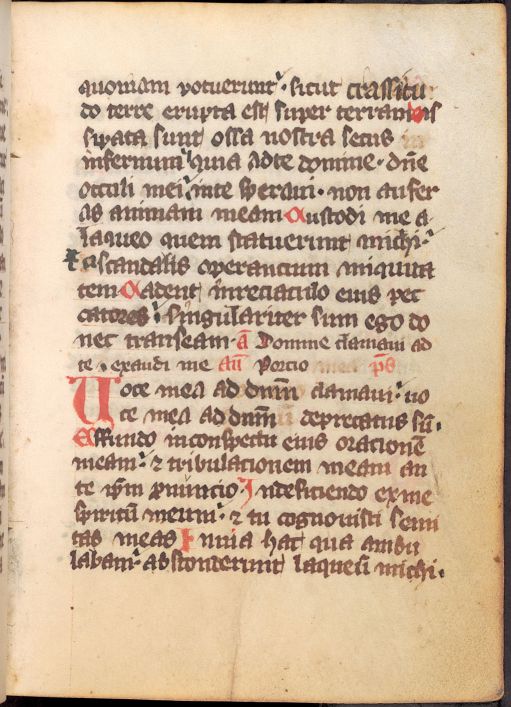 quoniam potuerunt. sicut crassitu
do terre erupta est super terram
sipata sunt ossa nostra secus in
infernum quia ad te domine. dñe
occuli mei in te speraui. non aufer
as animam meam Custodi me a
laqueo quem statuerunt michi.
scandalis operancium iniquita
tem Cadent in reciaculo eius pec
catores. singulariter sum ego do
nec transeam. a᷃ Domine clamaui ad
te. exaudi me añ Porcio mea p̄s
Uoce mea ad dnm̄ clamaui. uo
ce mea ad dnm̄ deprecatus sū.
Effundo in conspectu eius oracionē
meam. ⁊ tribulacionem meam an
te ip̄m pnuncio. In deficiendo ex me
spiritū meum. ⁊ tu cognouisti semi
tas meas In uia hac qua ambu
labam. absconderunt laqueū michi.